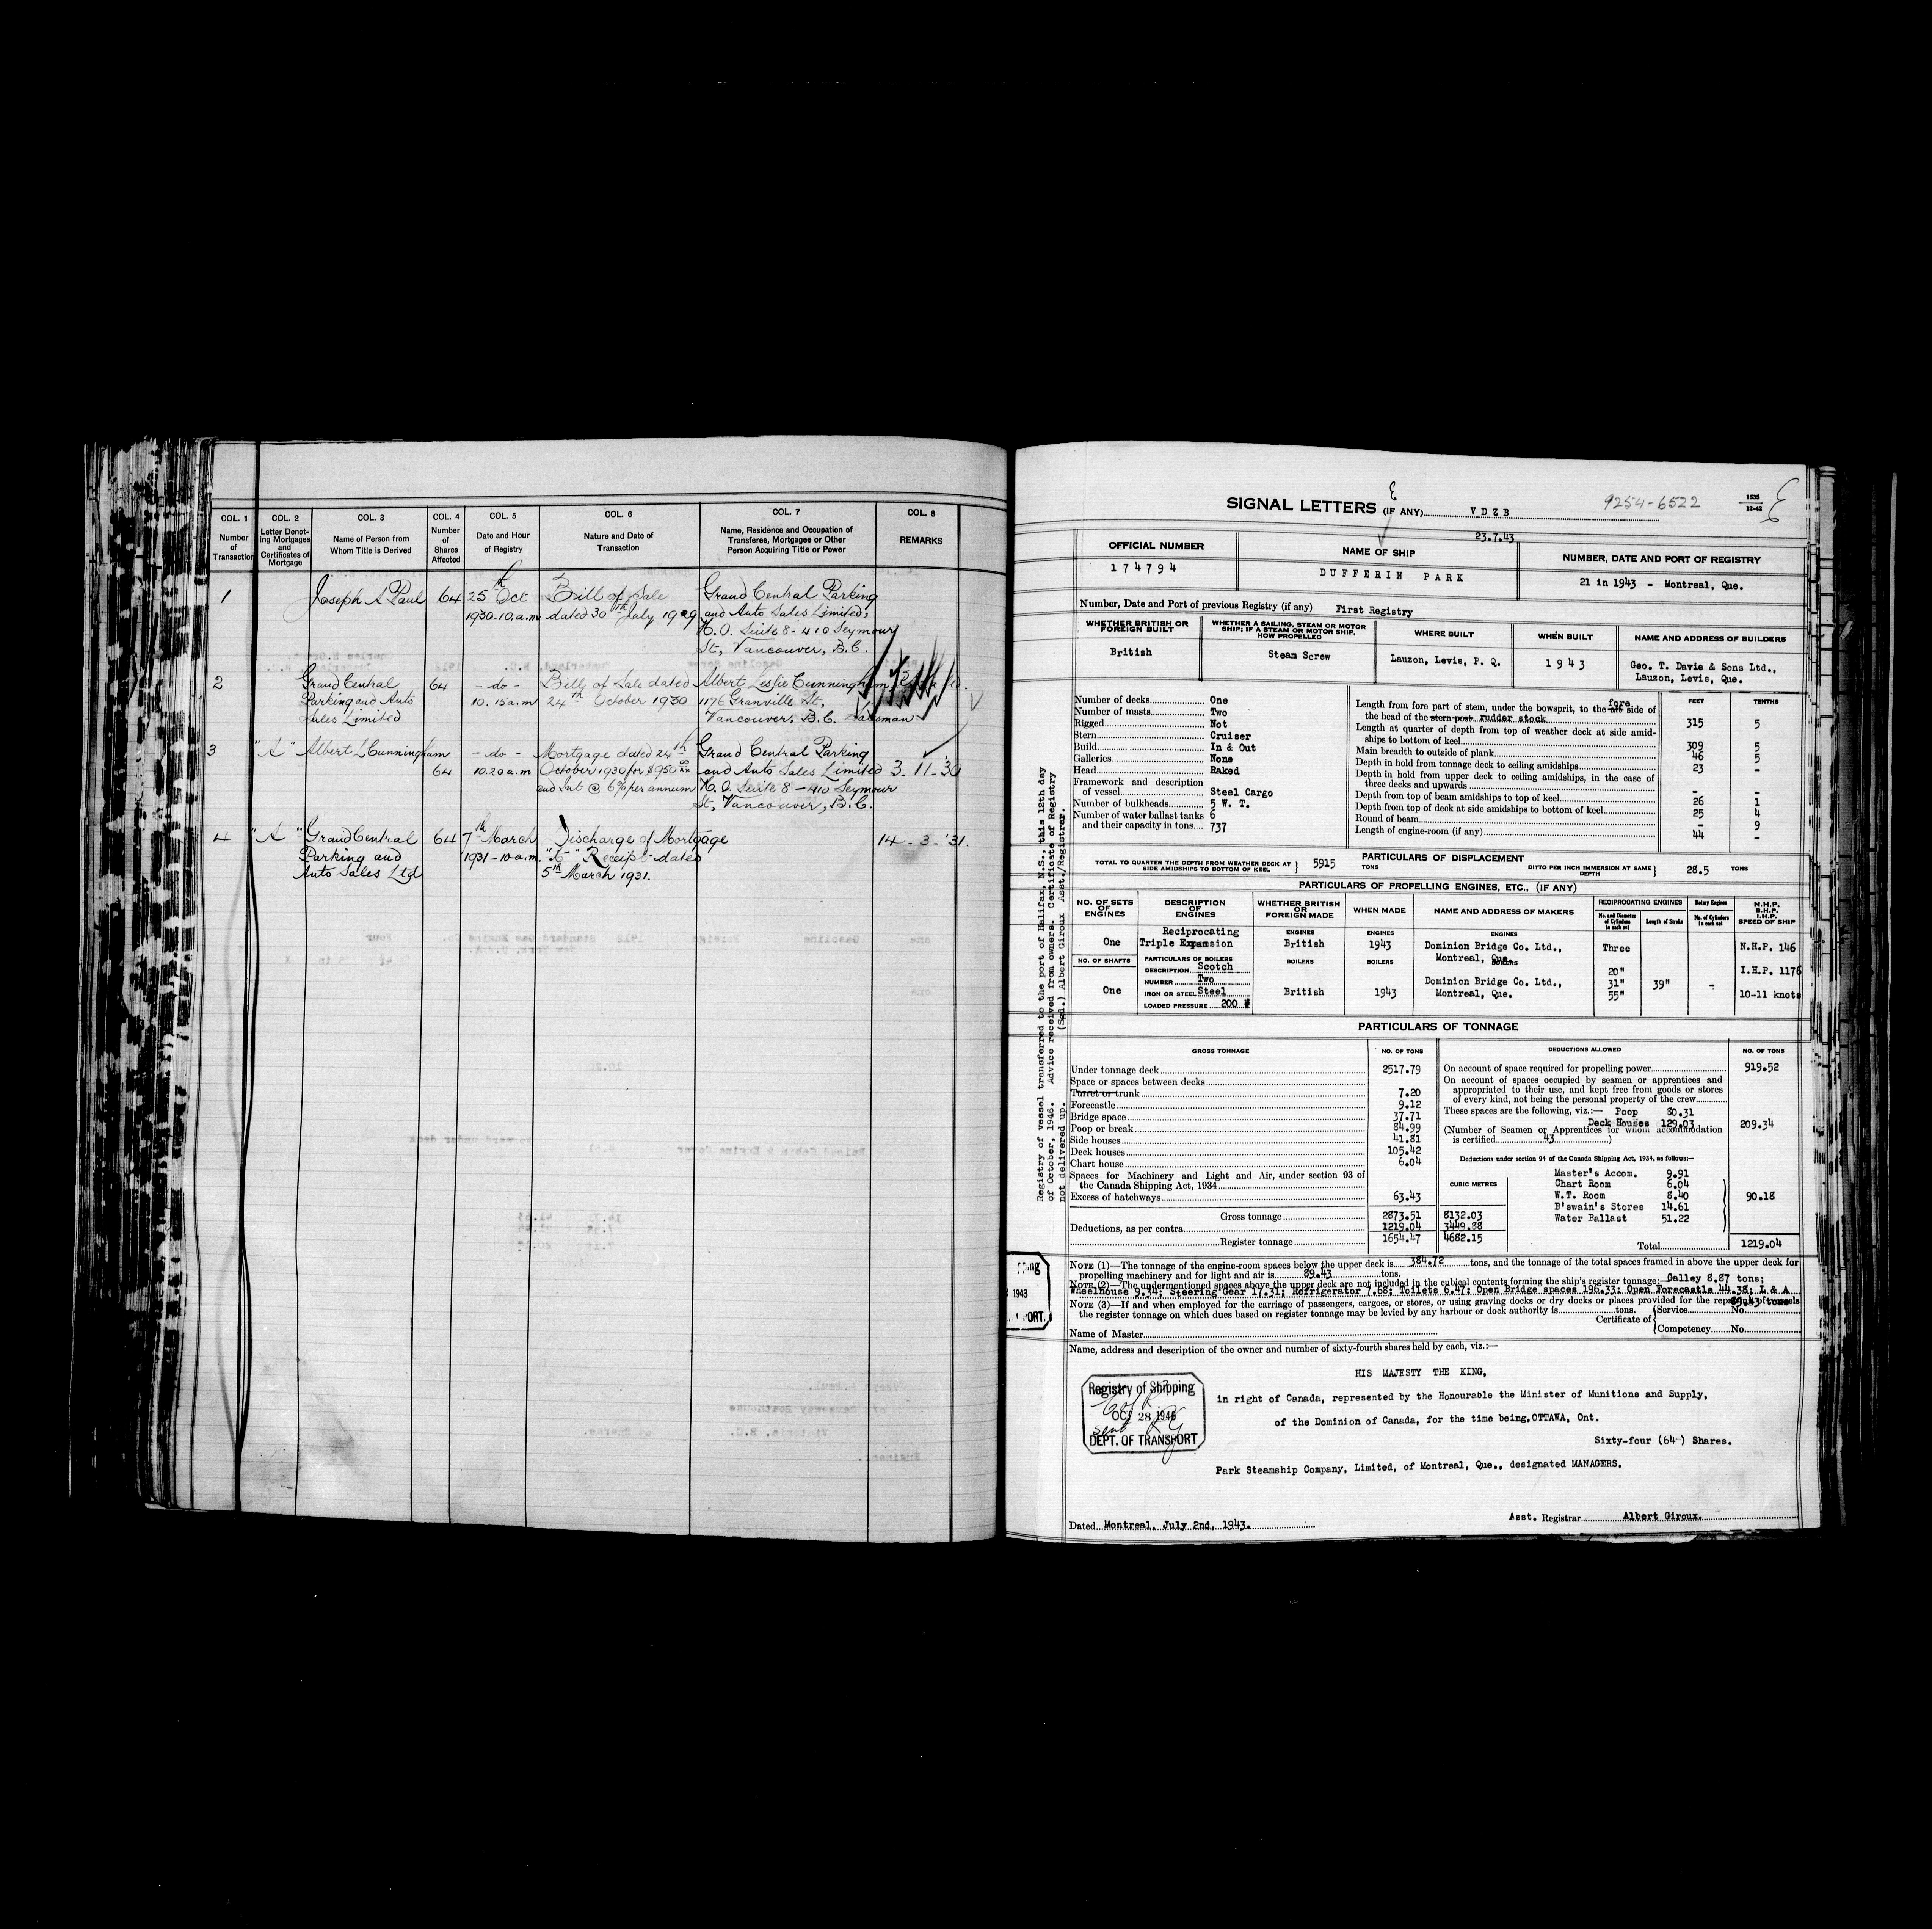 COL. 1 COL. 2 COL. 3 COL. 4 COL. 5 COL. 6 COL. 7 COL. 8
Number of Transaction
Letter Denoting Mortgages and Certificates of Mortgage
Name of Person from Whom Title is Derived
Number of Shares Affected
Date and Hour of Registry
Nature and Date of Transaction
Name, Residence and Occupation of Transferee, Mortgagee or Other Person Acquiring Title or Power
REMARKS
1 Joseph A Paul 64 25th Oct Bill of Sale Grand Central Parking
1930-10.a.m dated 30th July 1929 and Auto Sales Limited,
H.O. Suite 8-410 Seymour
St, Vancouver, B.C.
2 Grand Central 64 - do - Bill of Sale dated Albert Leslie Cunningham
Parking and Auto 10.15a.m 24th October 1930 1176 Granville St,
Sales Limited Vancouver, B.C. Salesman
3 "A" Albert L Cunningham - do - Mortgage dated 24th Grand Central Parking
64 10.20a.m October 1930 for $950 00/xx and Auto Sales Limited 3-11-30
and Int @ 6% per annum H.O. Suite 8-410 Seymour
St, Vancouver, B.C.
4 "A" Grand Central 64 7th March Discharge of Mortgage 14-3-'31.
Parking and 1931-10-a.m. "A" Receipt dated
Auto Sales Ltd 5th March 1931.
SIGNAL LETTERS (IF ANY) VDZB
9254-6522
1535
12-42
23.7.43
OFFICIAL NUMBER NAME OF SHIP NUMBER, DATE AND PORT OF REGISTRY
174794 DUFFERIN PARK 21 in 1943 - Montreal, Que.
Number, Date and Port of previous Registry (if any) First Registry
WHETHER BRITISH OR FOREIGN BUILT
WHETHER A SAILING, STEAM OR MOTOR SHIP; IF A STEAM OR MOTOR SHIP, HOW PROPELLED
WHERE BUILT WHEN BUILT NAME AND ADDRESS OF BUILDERS
British Steam Screw Lauzon, Levis, P. Q. 1943 Geo. T. Davie & Sons Ltd.,
Lauzon, Levis, Que.
Number of decks One
Number of masts Two
Rigged Not
Stern Cruiser
Build In & Out
Galleries None
Head Raked
Framework and description
of vessel Steel Cargo
Number of bulkheads 5 W. T.
Number of water ballast tanks 6
and their capacity in tons 737
FEET TENTHS
Length from fore part of stem, under the bowsprit, to the aft fore side of
the head of the stern post rudder stock 315 5
Length at quarter of depth from top of weather deck at side amid-
ships to bottom of keel 309 5
Main breadth to outside of plank 46 5
Depth in hold from tonnage deck to ceiling amidships 23 -
Depth in hold from upper deck to ceiling amidships, in the case of
three decks and upwards - -
Depth from top of beam amidships to top of keel 26 1
Depth from top of deck at side amidships to bottom of keel 25 4
Round of beam - 9
Length of engine-room (if any) 44 -
PARTICULARS OF DISPLACEMENT
TOTAL TO QUARTER THE DEPTH FROM WEATHER DECK AT SIDE AMIDSHIPS TO BOTTOM OF KEEL 5915 TONS
DITTO PER INCH IMMERSION AT SAME DEPTH 28.5 TONS
PARTICULARS OF PROPELLING ENGINES, ETC., (IF ANY)
NO. OF SETS OF ENGINES
DESCRIPTION OF ENGINES
WHETHER BRITISH OR FOREIGN MADE
WHEN MADE
NAME AND ADDRESS OF MAKERS
RECIPROCATING ENGINES
No. and Diameter of Cylinders in each set
Length of Stroke
Rotary Engines
No. of Cylinders in each set
N.H.P.
B.H.P.
I.H.P.
SPEED OF SHIP
ENGINES ENGINES ENGINES
One Reciprocating Triple Expansion British 1943 Dominion Bridge Co. Ltd., Three N.H.P. 146
Montreal, Que.
NO. OF SHAFTS PARTICULARS OF BOILERS BOILERS BOILERS BOILERS
DESCRIPTION Scotch 20" I.H.P. 1176
NUMBER Two Dominion Bridge Co. Ltd., 31" 39" -
One IRON OR STEEL Steel British 1943 Montreal, Que. 55" 10-11 knots
LOADED PRESSURE 200 #
PARTICULARS OF TONNAGE
GROSS TONNAGE NO. OF TONS
Under tonnage deck 2517.79
Space or spaces between decks
Turret or trunk 7.20
Forecastle 9.12
Bridge space 37.71
Poop or break 84.99
Side houses 41.81
Deck houses 105.42
Chart house 6.04
Spaces for Machinery and Light and Air, under section 93 of
the Canada Shipping Act, 1934
Excess of hatchways 63.43
CUBIC METRES
Gross tonnage 2873.51 8132.03
Deductions, as per contra 1219.04 3449.88
Register tonnage 1654.47 4682.15
DEDUCTIONS ALLOWED NO. OF TONS
On account of space required for propelling power 919.52
On account of spaces occupied by seamen or apprentices and
appropriated to their use, and kept free from goods or stores
of every kind, not being the personal property of the crew
These spaces are the following, viz.:— Poop 80.31
Deck Houses 129.03 209.34
(Number of Seamen or Apprentices for whom accommodation
is certified 43 )
Deductions under section 94 of the Canada Shipping Act, 1934, as follows:—
Master's Accom. 9.91
Chart Room 6.04
W.T. Room 8.40 90.18
B'swain's Stores 14.61
Water Ballast 51.22
Total 1219.04
NOTE (1)—The tonnage of the engine-room spaces below the upper deck is 384.72 tons, and the tonnage of the total spaces framed in above the upper deck for
propelling machinery and for light and air is 89.43 tons.
NOTE (2)—The undermentioned spaces above the upper deck are not included in the cubical contents forming the ship's register tonnage: Galley 8.87 tons;
Wheelhouse 9.34; Steering Gear 17.31; Refrigerator 7.68; Toilets 6.47; Open Bridge spaces 196.33; Open Forecastle 44.38; L & A
89.43 tons
NOTE (3)—If and when employed for the carriage of passengers, cargoes, or stores, or using graving docks or dry docks or places provided for the repair of vessels
the register tonnage on which dues based on register tonnage may be levied by any harbour or dock authority is tons.
Certificate of Service No.
Competency No.
Name of Master
Name, address and description of the owner and number of sixty-fourth shares held by each, viz.:—
HIS MAJESTY THE KING,
in right of Canada, represented by the Honourable the Minister of Munitions and Supply,
of the Dominion of Canada, for the time being, OTTAWA, Ont.
Sixty-four (64) Shares.
Park Steamship Company, Limited, of Montreal, Que., designated MANAGERS.
Registry of Shipping
OCT 28 1946
DEPT. OF TRANSPORT
Dated Montreal, July 2nd, 1943.
Asst. Registrar Albert Giroux.
Registry of vessel transferred to the port of Halifax, N.S., this 12th day
of October, 1946. Advice received from owners. Certificate of Registry
not delivered up. (Sgd.) Albert Giroux Asst./Registrar.
1943
PORT.